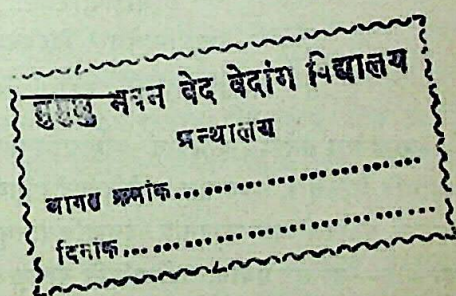 मुमुक्षु भवन वेद वेदांग विद्यालय
ग्रन्थालय
आगत क्रमांक................................
दिनांक........................................